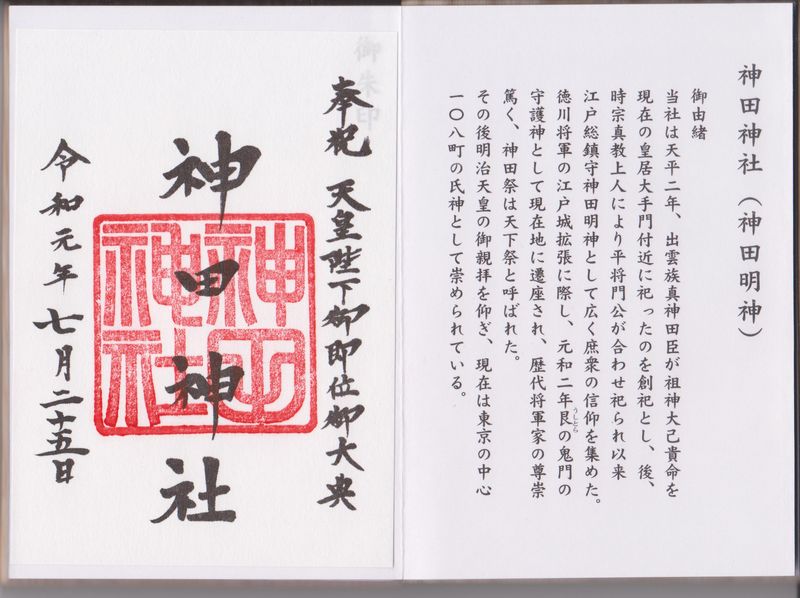 神田神社（神田明神）
御由緒
当社は天平二年、出雲族真神田臣が祖神大己貴命を
現在の皇居大手門付近に祀ったのを創祀とし、後、
時宗真教上人により平将門公が合わせ祀られ以来
江戸総鎮守神田明神として広く庶衆の信仰を集めた。
徳川将軍の江戸城拡張に際し、元和二年艮の鬼門の
うしとら
守護神として現在地に遷座され、歴代将軍家の尊崇
篤く、神田祭は天下祭と呼ばれた。
その後明治天皇の御親拝を仰ぎ、現在は東京の中心
一〇八町の氏神として崇められている。
御朱印
奉祝 天皇陛下御即位御大典
神田神社
神田神社
令和元年七月二十五日